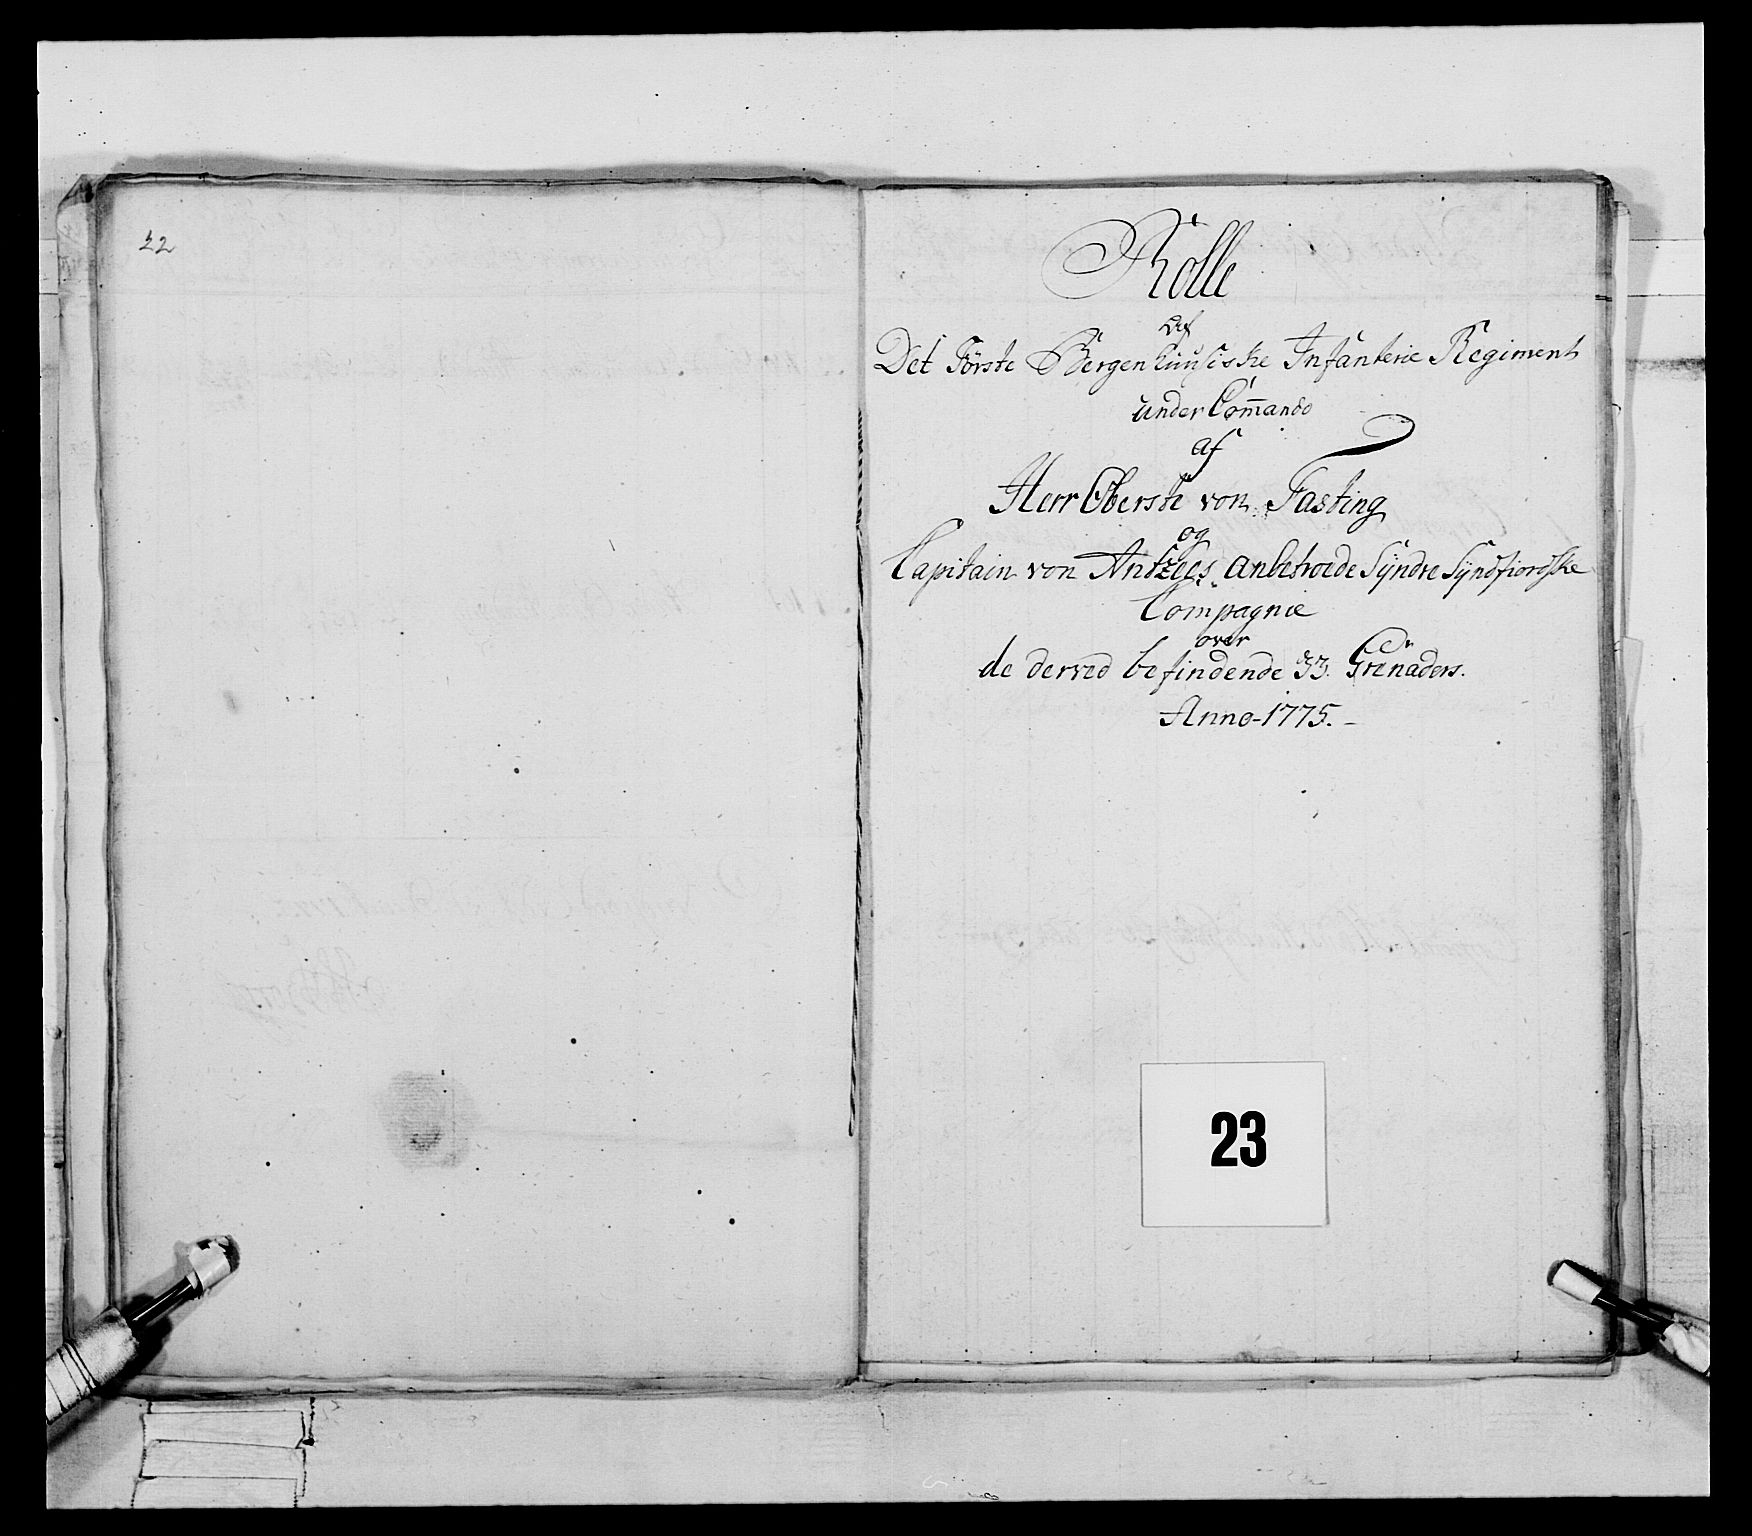 22
Rolle
Af
Det Förste Bergenhuusiske Infanterie Regiment
under Com̄ando
af
Herr Oberste von Fasting
og
Capitain von Antzées anbetroede Syndre Syndfiordske
Compagnie
over
de derved befindende 33 Grenaders.
Anno-1775.-
23